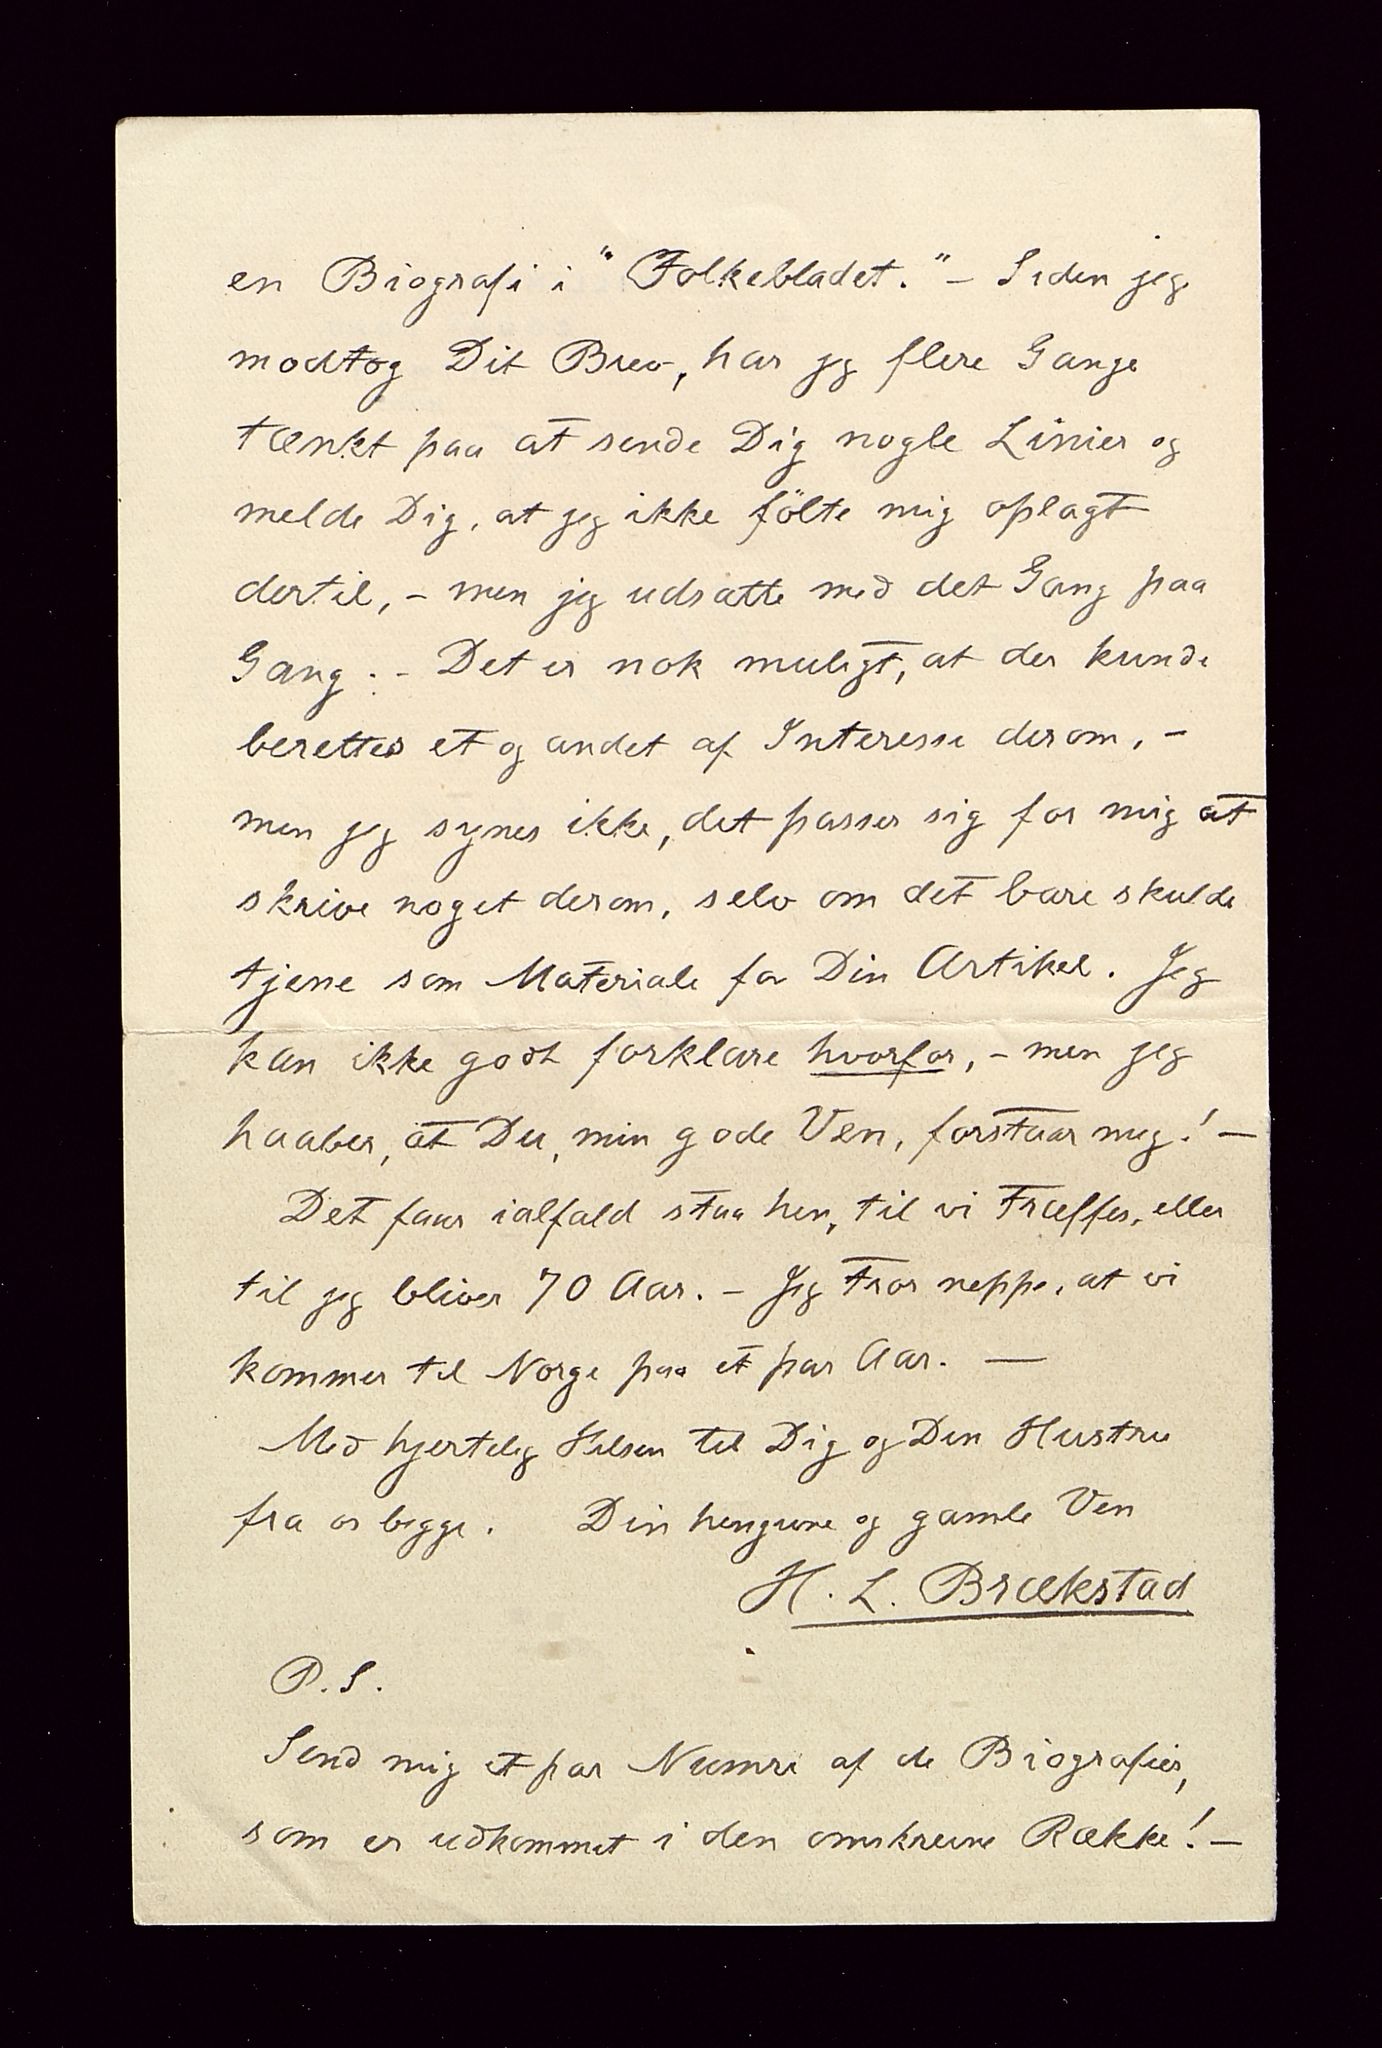 en Biografi i "Folkebladet." – Siden jeg
modtog Dit Brev, har jeg flere Gange
tænkt paa at sende Dig nogle Linier og
melde Dig, at jeg ikke fölte mig oplagt
dertil, – men jeg udsatte med det Gang paa
Gang. – Det er nok muligt, at der kunde
berettes et og andet af Interesse derom, –
men jeg synes ikke, det passer sig for mig at
skrive noget derom, selv om det bare skulde
tjene som Materiale for Din Artikel. Jeg
kan ikke godt forklare hvorfor, – men jeg
haaber, at Du, min gode Ven, forstaar mig! –
Det faar ialfald staa hen, til vi træffes, eller
til jeg bliver 70 Aar. – Jeg tror neppe, at vi
kommer til Norge paa et par Aar. –
Med hjertelig Hilsen til Dig og Din Hustru
fra os begge. Din hengivne og gamle Ven
H. L. Brækstad
P.S.
Send mig et par Numre af de Biografier,
som er udkommet i den omskrevne Række! –